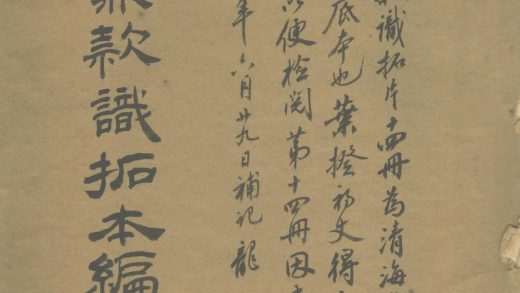 識拓片十四冊為清海
底本也葉揆初丈得
以便檢閱第十四冊因
年六月廿九日補記 龍
款識拓本編